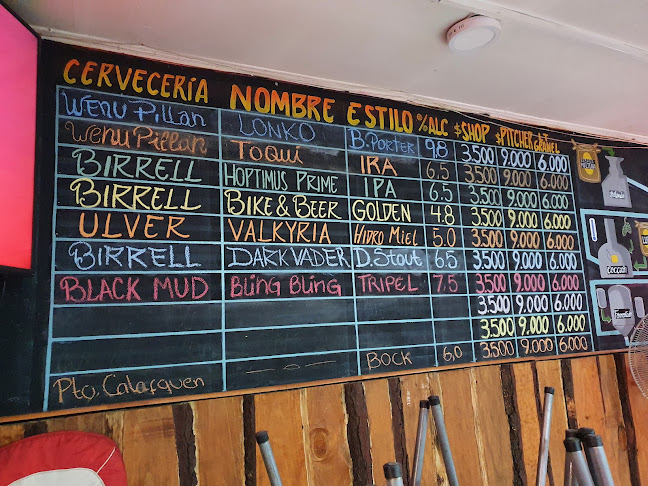 CERVECERÍA NOMBRE ESTILO %ALC $SHOP $PITCHER 1 LT GRANEL
Wenu Pillan LONKO B. Porter 9,8 3.500 9.000 6.000
Wenu Pillan TOQUI IRA 6.5 3.500 9.000 6.000
BIRRELL HOPTIMUS PRIME IPA 6.5 3.500 9.000 6.000
BIRRELL BIKE & BEER GOLDEN 4.8 3.500 9.000 6.000
ULVER VALKYRIA Hidro Miel 5.0 3.500 9.000 6.000
BIRRELL DARKVADER D. Stout 6.5 3.500 9.000 6.000
BLACK MUD Bling Bling TRIPEL 7.5 3.500 9.000 6.000
3.500 9.000 6.000
3.500 9.000 6.000
Pto. Calafquen BOCK 6,0 3.500 9.000 6.000